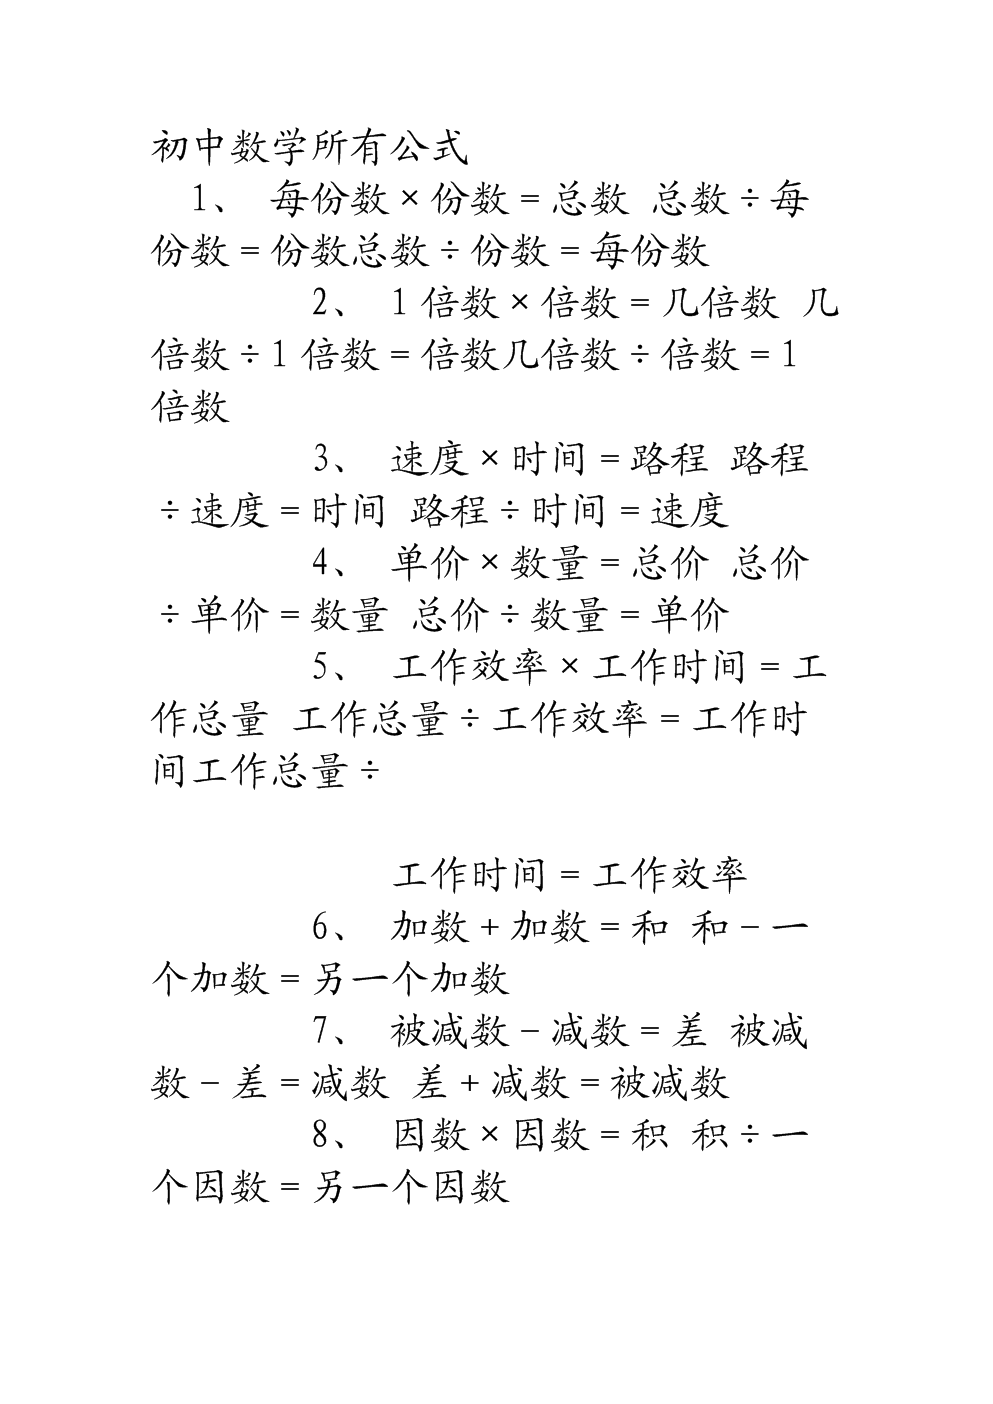 初中数学所有公式
1、 每份数×份数=总数 总数÷每
份数=份数总数÷份数=每份数
2、 1倍数×倍数=几倍数 几
倍数÷1倍数=倍数几倍数÷倍数=1
倍数
3、 速度×时间=路程 路程
÷速度=时间 路程÷时间=速度
4、 单价×数量=总价 总价
÷单价=数量 总价÷数量=单价
5、 工作效率×工作时间=工
作总量 工作总量÷工作效率=工作时
间工作总量÷
工作时间=工作效率
6、 加数+加数=和 和-一
个加数=另一个加数
7、 被减数-减数=差 被减
数-差=减数 差+减数=被减数
8、 因数×因数=积 积÷一
个因数=另一个因数